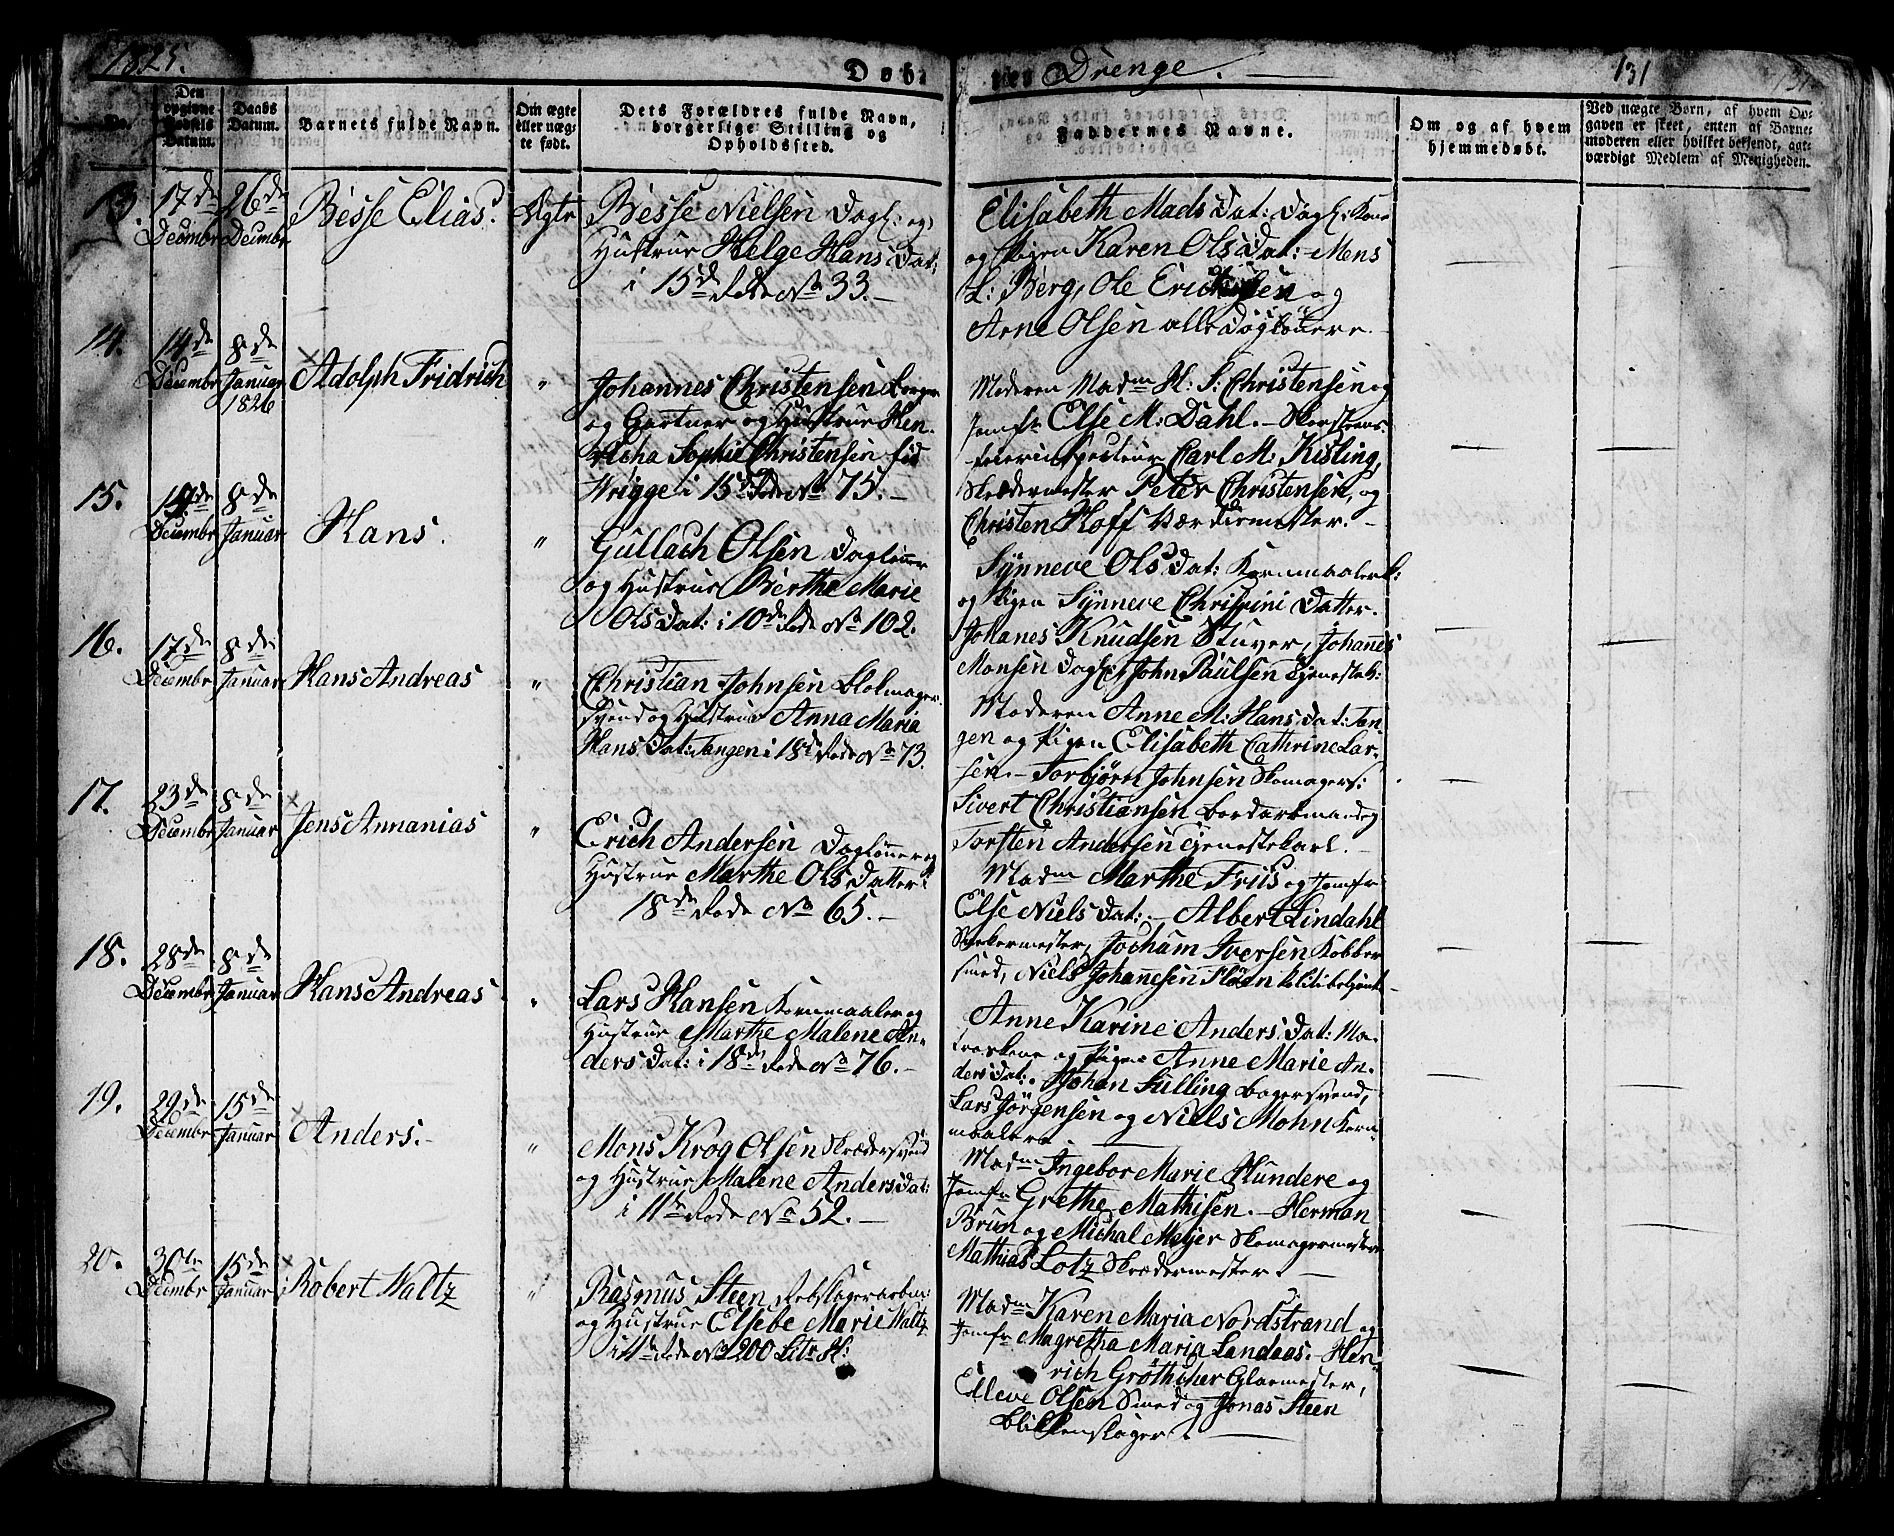 1825.
Døbte Drenge.
131
Den opgivne Fødsels Datum.
Daabs Datum.
Barnets fulde Navn.
Om ægte eller uægte født.
Dets Forældres fulde Navn, borgerlige Stilling og Opholdssted.
Faddernes Navne.
Om og af hvem hjemmedøbt.
Ved uægte Børn, af hvem Opgaven er skeet, enten af Barnemoderen eller hvilket bekjendt, agtværdigt Medlem af Menigheden.
13.
17de Decembr
26de Decembr
Besse Elias.
Ægte
Besse Nielsen Dagl: og
Hustrue Helge Hans Dat:
i 15de Rode No 33.
Elisabeth Mads Dat: Dagl: Kone
og Pigen Karen Ols Dat: Mons
L: Berg, Ole Erichsen og
Arne Olsen alle Daglønere.
14.
14de Decembr
8de Januar 1826
Adolph Fridrich
"
Johannes Christensen Borger
og Gartner og Hustrue Hen-
richa Sophie Christensen fød
Wrigge i 15de Rode No 75.
Moderen Madm H: S: Christensen og
Jomfr Else M: Dahl. Skorsteens-
feierinspecteur Carl M: Kisling,
Skrædermester Peter Christensen, og
Christen Hoff
15.
8de Januar
Decembr
Hans.
"
Gullach Olsen Dagløner
og Hustrue Berthe Marie
Ols Dat: i 10de Rode No 102.
Synneve Ols Dat: Kornmaaler K:
og Pigen Synneve Christini Datter.
Johanes Knudsen Stuver, Johannes
Monsen Dagl: John Paulsen Tjenestek:
16.
17de Decembr
8de Januar
Hans Andreas
"
Christian Johnsen Blokmager
svend og Hustrue Anna Maria
Hans Dat: Tangen i 18de Rode No 73.
Moderen Anne M: Hans Dat: Tan-
gen og Pigen Elisabeth Cathrine Lar-
sen. Torbjørn Johnsen Skomagers:
Sivert Christiansen Bordarbmand og
Torsten Andersen Tjenestekarl.
17.
23de Decembr
8de Januar
Jens Annanias
"
Erich Andersen Dagløner og
Hustrue Marthe Ols Datter i
18de Rode No 65.
Madm Marthe Friis og Jomfr
Else Niels Dat: Albert Lindahl
Jocham Iversen Kobber
smed, Niels Johannesen Fløen Politibetjent
18.
28de Decembr
8de Januar
Hans Andreas
"
Lars Hansen Kornmaaler og
Hustrue Marthe Malene An-
ders Dat: i 18de Rode No 76.
Anne Karine Anders Dat: Ma-
troskone og Pigen Anne Marie An-
ders Dat: Johan Silling Bagersvend,
Lars Jørgensen og Niels Mohn Korn-
maalere
19.
29de Decembr
15de Januar
Anders.
"
Mons Krog Olsen Skrædersvend
og Hustrue Malene Anders Dat:
i 11te Rode No 52.
Madm Ingebor Marie Hundere og
Jomfr Grethe Mathisen. Herman
Brun og Michal Meyer Skomagermestere
Mathias Lotz Skrædermester.
20.
30te Decembr
15de Januar
Robert Waltz
"
Rasmus Steen Rebslagerarbm:
og Hustrue Elsebe Marie Waltz
i 11te Rode No 200 Litr H:
Madm Karen Maria Nordstrand og
Jomfr Magretha Maria Landaas. Hen-
rich Grøthcher Glarmester,
Elleve Olsen Smed og Jonas Steen
Blikkenslager.